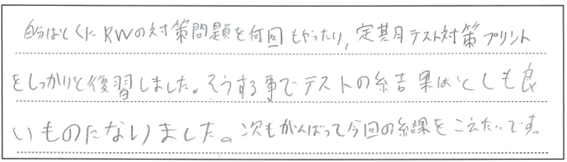 自分はとくにRWの対策問題を何回もやったり,定期テスト対策プリント
をしっかりと復習しました。そうする事でテストの結果はとても良
いものになりました。次もがんばって今回の結果をこえたいです。